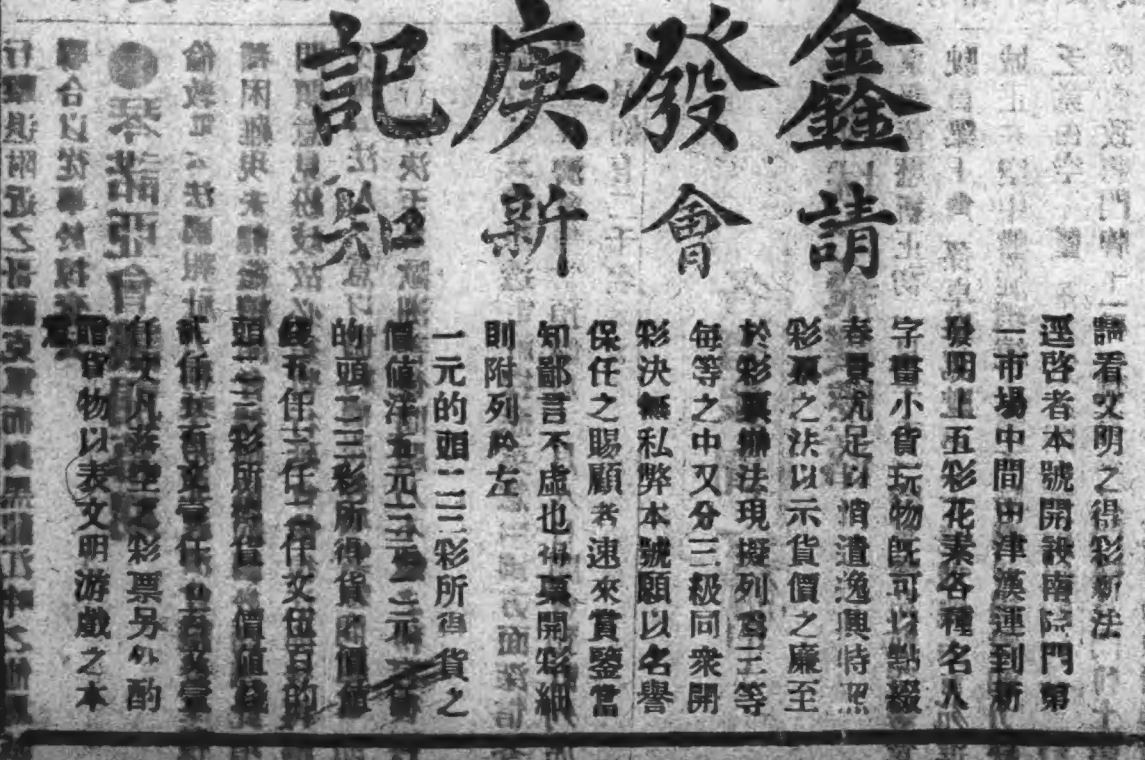 鑫發庚記
請會新知
請看文明之得彩新法
逕啓者本號開設南門第
一市場中間由津漢運到新
發明上五彩花素各種名人
字畫小貨玩物既可以點綴
春景尤足以消遣逸興特照
彩票之法以示貨價之廉至
於彩票辦法現擬列爲三等
每等之中又分三級同衆開
彩決無私弊本號願以名譽
保任之賜顧者速來賞鑒當
知鄙言不虛也得票開彩細
則附列於左
一元的頭二三彩所得貨之
價值洋五元三元二元
的頭二三彩所得貨之價值
錢五仟三仟二仟文伍百的
頭二三彩所得貨價值錢
貳仟五百文壹仟五百文壹
仟文凡落空之彩票另外酌
贈貨物以表文明游戲之本
意